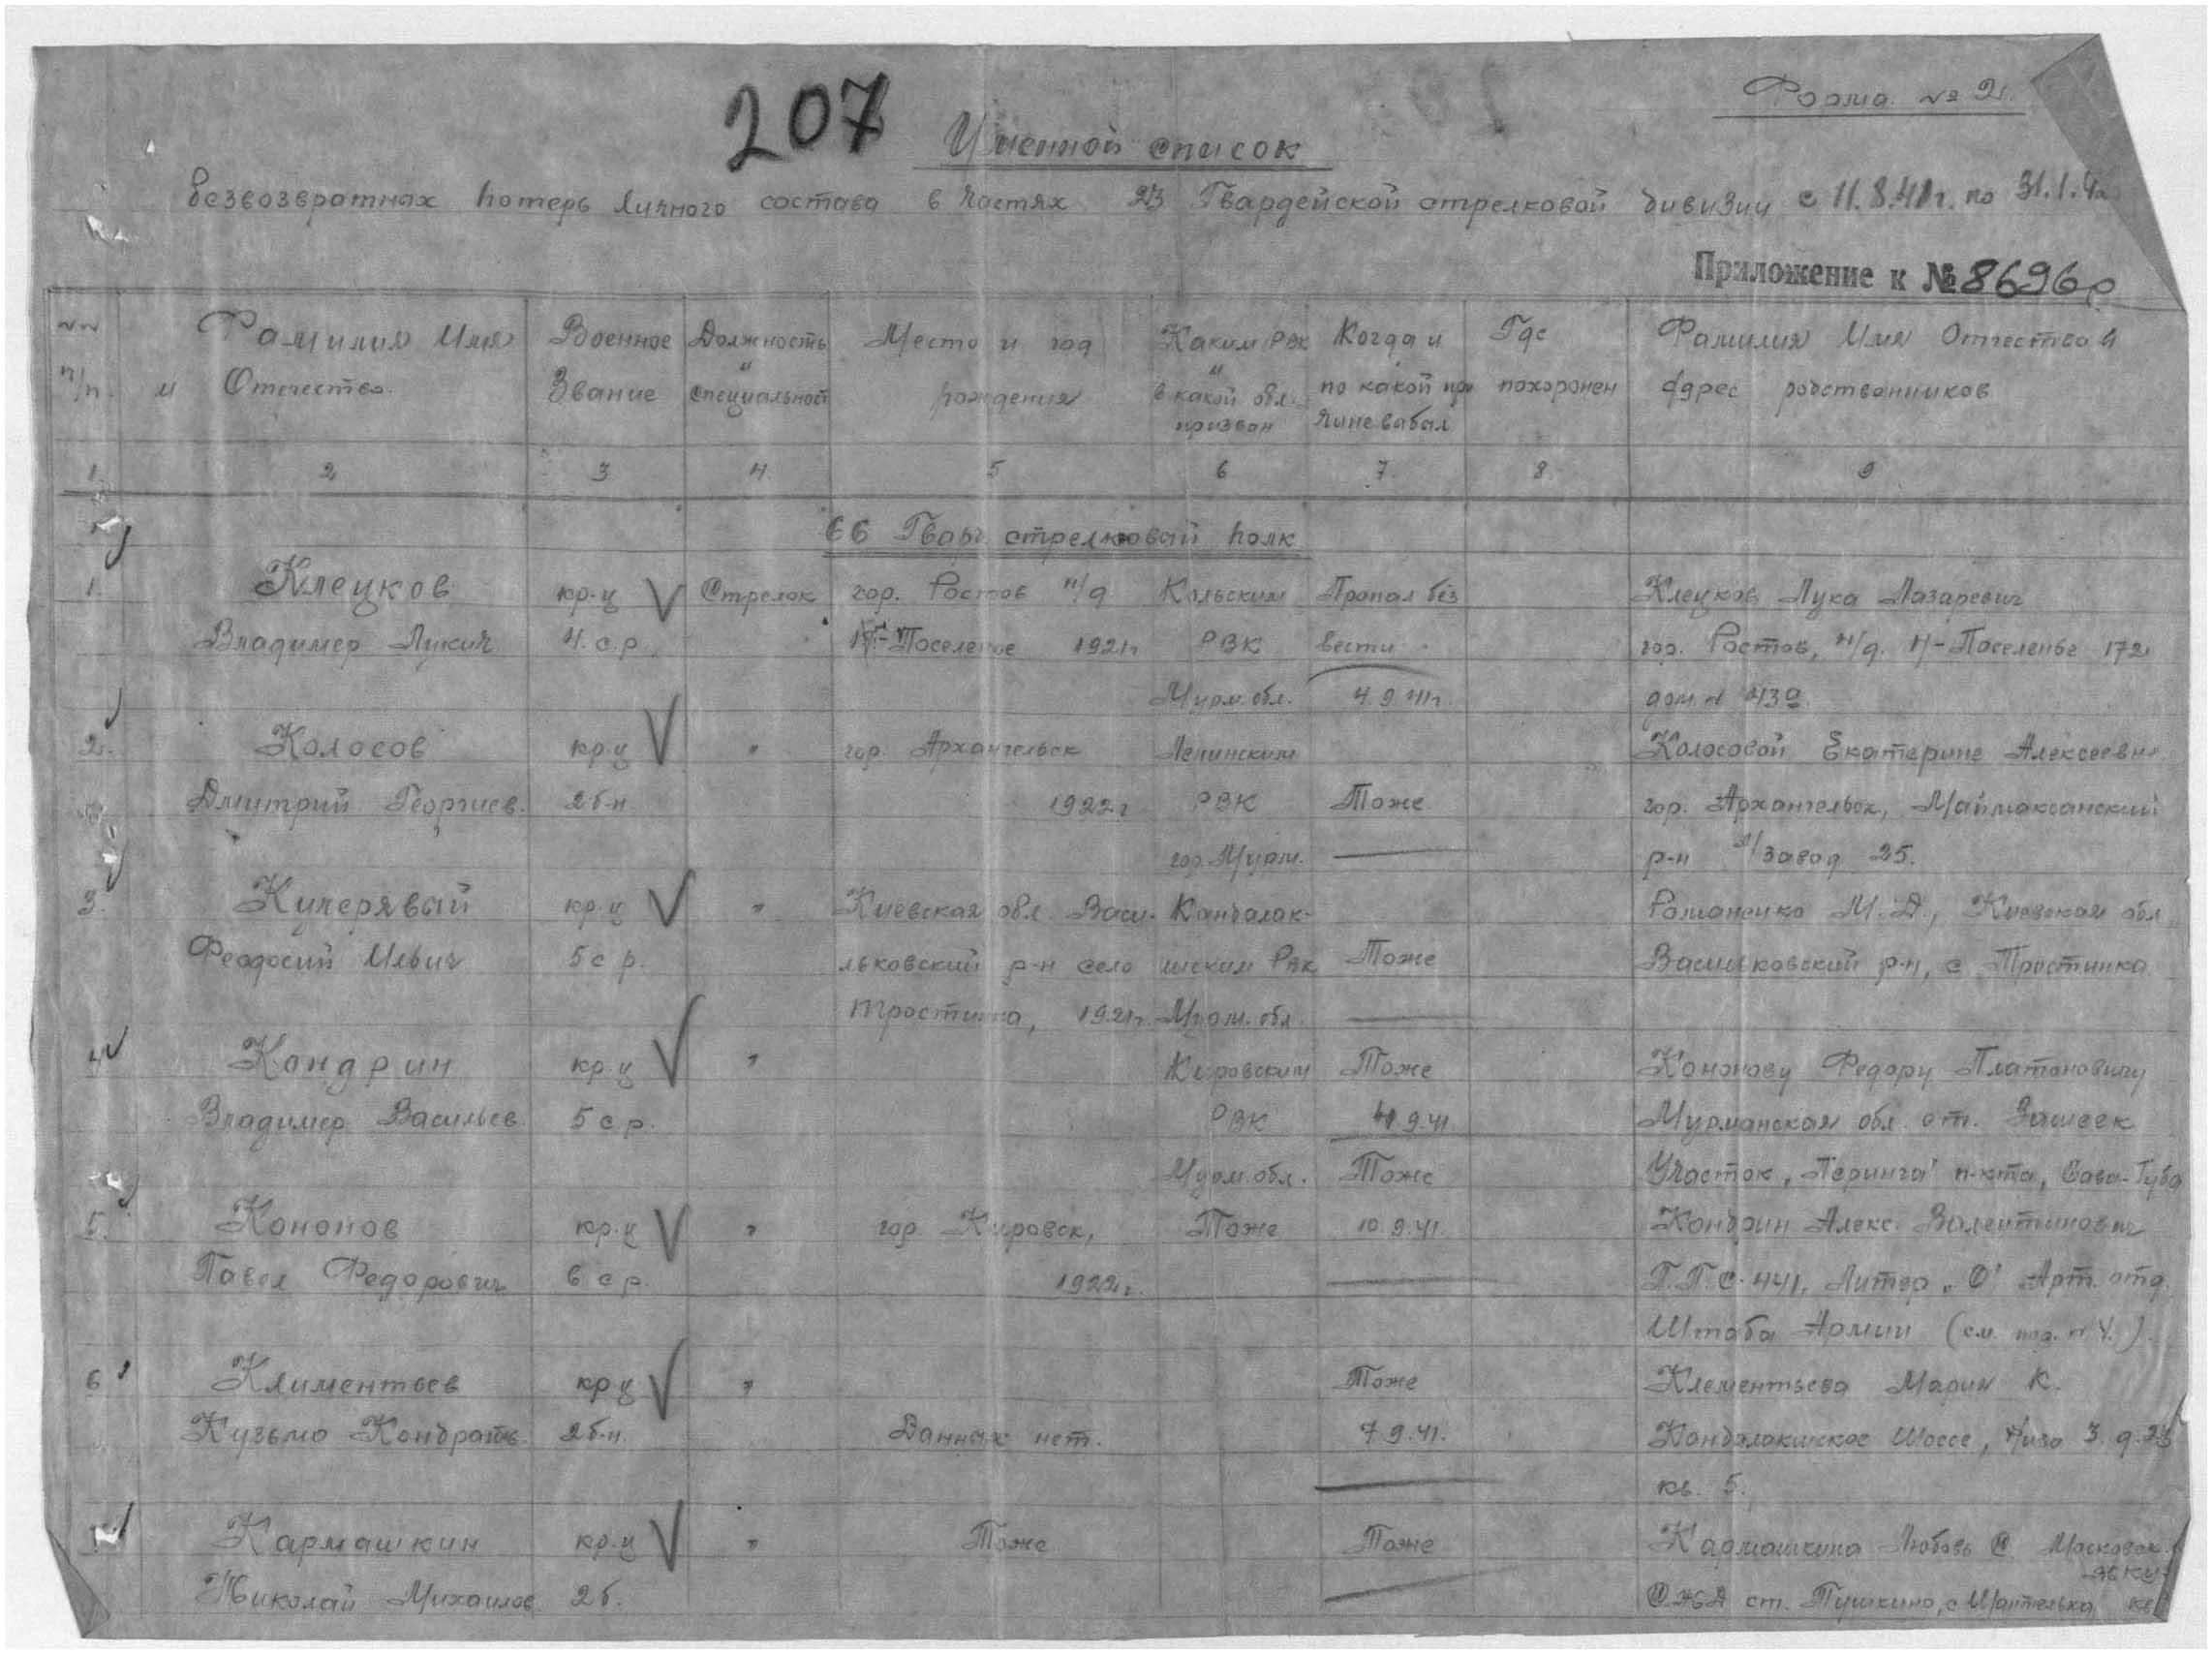 Форма № 2.
207
Именной список
безвозвратных потерь личного состава в частях 23 Гвардейской стрелковой дивизии с 11.8.41г. по 31.1.42
Приложение к № 8696с
№№ Фамилия Имя Военное Должность Место и год Каким РВК Когда и Где Фамилия Имя Отчество и
п/п. и Отчество. Звание и специальност рождения и в какой обл. призван по какой при чине выбыл похоронен адрес родственников
1. 2 3 4. 5 6 7. 8. 9
66 Гвард. стрелковый полк
1. Клецков кр-ц Стрелок гор. Ростов н/д Кольским Пропал без Клецков Лука Лазаревич
Владимер Лукич 4. с.р. Поселение 1921г РВК вести гор. Ростов, н/д. Поселенье 172
Мурм. обл. 4.9.41г. дом. №
2. Колосов кр.ц " гор. Архангельск Ленинским Колосовой Екатерине Алексеевн
Дмитрий Георгиев. 2б-н. 1922г РВК Тоже гор. Архангельск, Маймаксанский
гор. Мурм. р-н л/завод 25.
3. Кучерявый кр.ц " Киевская обл. Васи- Кандалак- Романенко М.Д., Киевская обл
Феодосий Ильич 5 с р. льковский р-н село шским РВК Тоже Васильковский р-н, с Тростинка
тростинка, 1921г. Мурм. обл.
4 Кондрин кр.ц " Кировским Тоже Кононову Федору Платоновичу
Владимер Васильев 5 с.р. РВК 9.41 Мурманская обл. ст. Зашеек
Мурм. обл. Тоже Участок „Перинга" п-кта, Сава-Губа
5. Кононов кр.ц " гор Кировск, Тоже 10.9.41. Кондрин Алекс. Валентинович
Павел Федорович 6 с р. 1922г. П.П.С. 441, Литер „О" Арт. отд.
Штаба Армии (см. пор. № 4.)
6 Климентьев кр ц " Тоже Клементьева Мария К.
Кузьма Кондрать. 2б-н. Данных нет. 7.9.41. Кандалакшское Шоссе, 3. д. 23
кв. 5.
Кармашкин кр.ц " Тоже Тоже Кармашкина Любовь С Московск.
Николай Михаилов. 2б. ж д ст. Пушкино, с